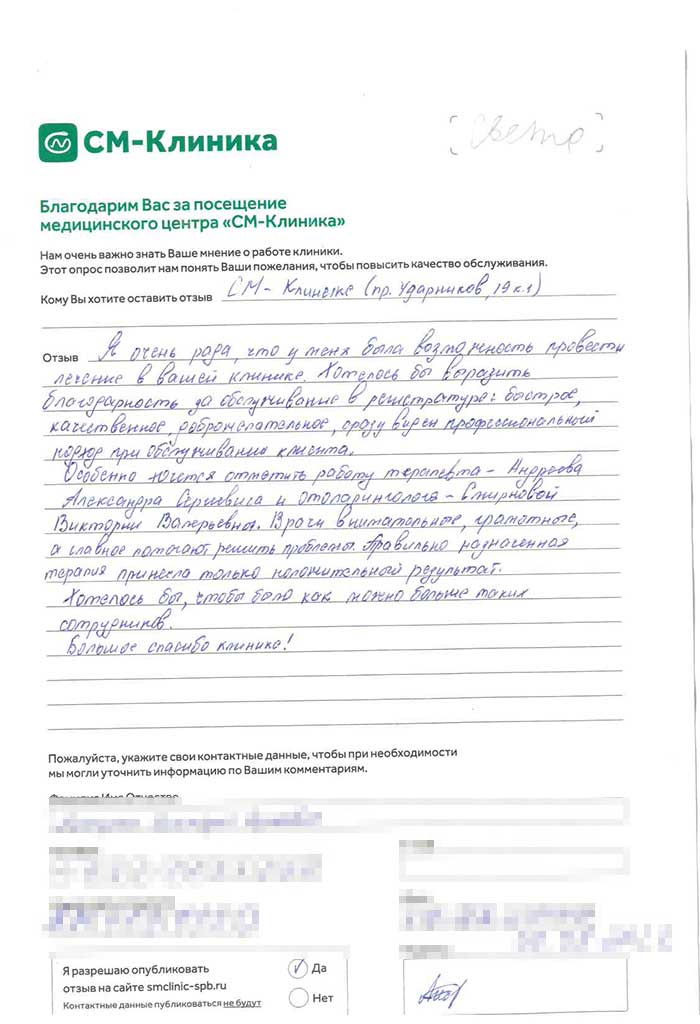 СМ-Клиника
Благодарим Вас за посещение
медицинского центра «СМ-Клиника»
Нам очень важно знать Ваше мнение о работе клиники.
Этот опрос позволит нам понять Ваши пожелания, чтобы повысить качество обслуживания.
Кому Вы хотите оставить отзыв СМ-Клинике (пр. Ударников, 19 к.1)
Отзыв Я очень рада, что у меня была возможность провести
лечение в вашей клинике. Хотелось бы выразить
благодарность за обслуживание в регистратуре: быстрое,
качественное, доброжелательное, сразу виден профессиональный
подход при обслуживании клиента.
Особенно хочется отметить работу терапевта - Андреева
Александра Сергеевича и отоларинголога - Смирновой
Виктории Валерьевны. Врачи внимательные, грамотные,
а главное помогают решить проблемы. Правильно назначенная
терапия принесла только положительный результат.
Хотелось бы, чтобы было как можно больше таких
сотрудников.
Большое спасибо клинике!
Пожалуйста, укажите свои контактные данные, чтобы при необходимости
мы могли уточнить информацию по Вашим комментариям.
Фамилия Имя Отчество
Я разрешаю опубликовать
отзыв на сайте smclinic-spb.ru
Контактные данные публиковаться не будут
Да
Нет